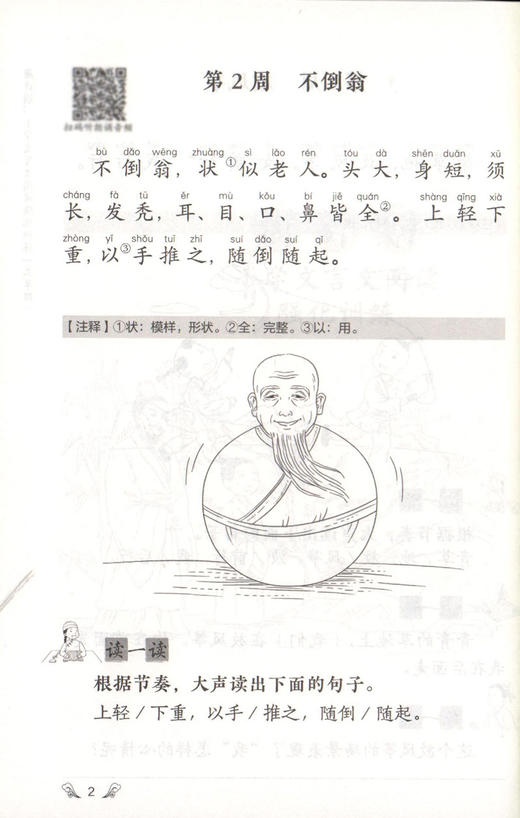 第2周 不倒翁
扫码听朗诵音频
bù dǎo wēng zhuàng sì lǎo rén tóu dà shēn duǎn xū
不倒翁，状①似老人。头大，身短，须
cháng fà tū ěr mù kǒu bí jiē quán shàng qīng xià
长，发秃，耳、目、口、鼻皆全②。上轻下
zhòng yǐ shǒu tuī zhī suí dǎo suí qǐ
重，以③手推之，随倒随起。
【注释】①状：模样，形状。②全：完整。③以：用。
读一读
根据节奏，大声读出下面的句子。
上轻/下重，以手/推之，随倒/随起。
2